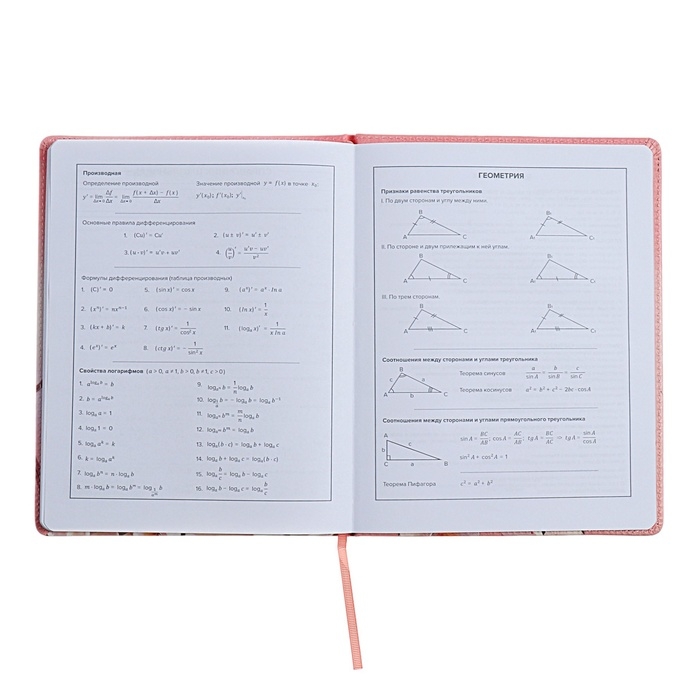 Производная
Определение производной
y' = lim Δx→0 Δf/Δx = lim Δx→0 (f(x + Δx) − f(x))/Δx
Значение производной y = f(x) в точке x₀:
y'(x₀); f'(x₀); y'ₓ₀
Основные правила дифференцирования
1. (Cu)' = Cu'
2. (u ± v)' = u' ± v'
3. (u · v)' = u'v + uv'
4. (u/v)' = (u'v − uv')/v²
Формулы дифференцирования (таблица производных)
1. (C)' = 0
2. (xⁿ)' = nxⁿ⁻¹
3. (kx + b)' = k
4. (eˣ)' = eˣ
5. (sin x)' = cos x
6. (cos x)' = − sin x
7. (tg x)' = 1/cos² x
8. (ctg x)' = − 1/sin² x
9. (aˣ)' = aˣ · ln a
10. (ln x)' = 1/x
11. (logₐ x)' = 1/(x ln a)
Свойства логарифмов (a > 0, a ≠ 1, b > 0, b ≠ 1, c > 0)
1. a^(logₐ b) = b
2. b = a^(logₐ b)
3. logₐ a = 1
4. logₐ 1 = 0
5. logₐ aᵏ = k
6. k = logₐ aᵏ
7. logₐ bⁿ = n · logₐ b
8. m · logₐ b = logₐ bᵐ
10. b = − logₐ b = logₐ b⁻¹
13. logₐ(b · c) = logₐ b + logₐ c
14. logₐ b + logₐ c = logₐ(b · c)
15. logₐ b/c = logₐ b − logₐ c
16. logₐ b − logₐ c = logₐ b/c
ГЕОМЕТРИЯ
Признаки равенства треугольников
I. По двум сторонам и углу между ними.
B
B₁
A C
A₁ C₁
II. По стороне и двум прилежащим к ней углам.
B
B₁
A C
A₁ C₁
III. По трем сторонам.
B
B₁
A C
A₁ C₁
Соотношения между сторонами и углами треугольника
B
c a
A b C
Теорема синусов a/sin A = b/sin B = c/sin C
Теорема косинусов a² = b² + c² − 2bc · cos A
Соотношения между сторонами и углами прямоугольного треугольника
A
b c
C a B
sin A = BC/AB; cos A = AC/AB; tg A = BC/AC ⇒ tg A = sin A/cos A
sin² A + cos² A = 1
Теорема Пифагора c² = a² + b²